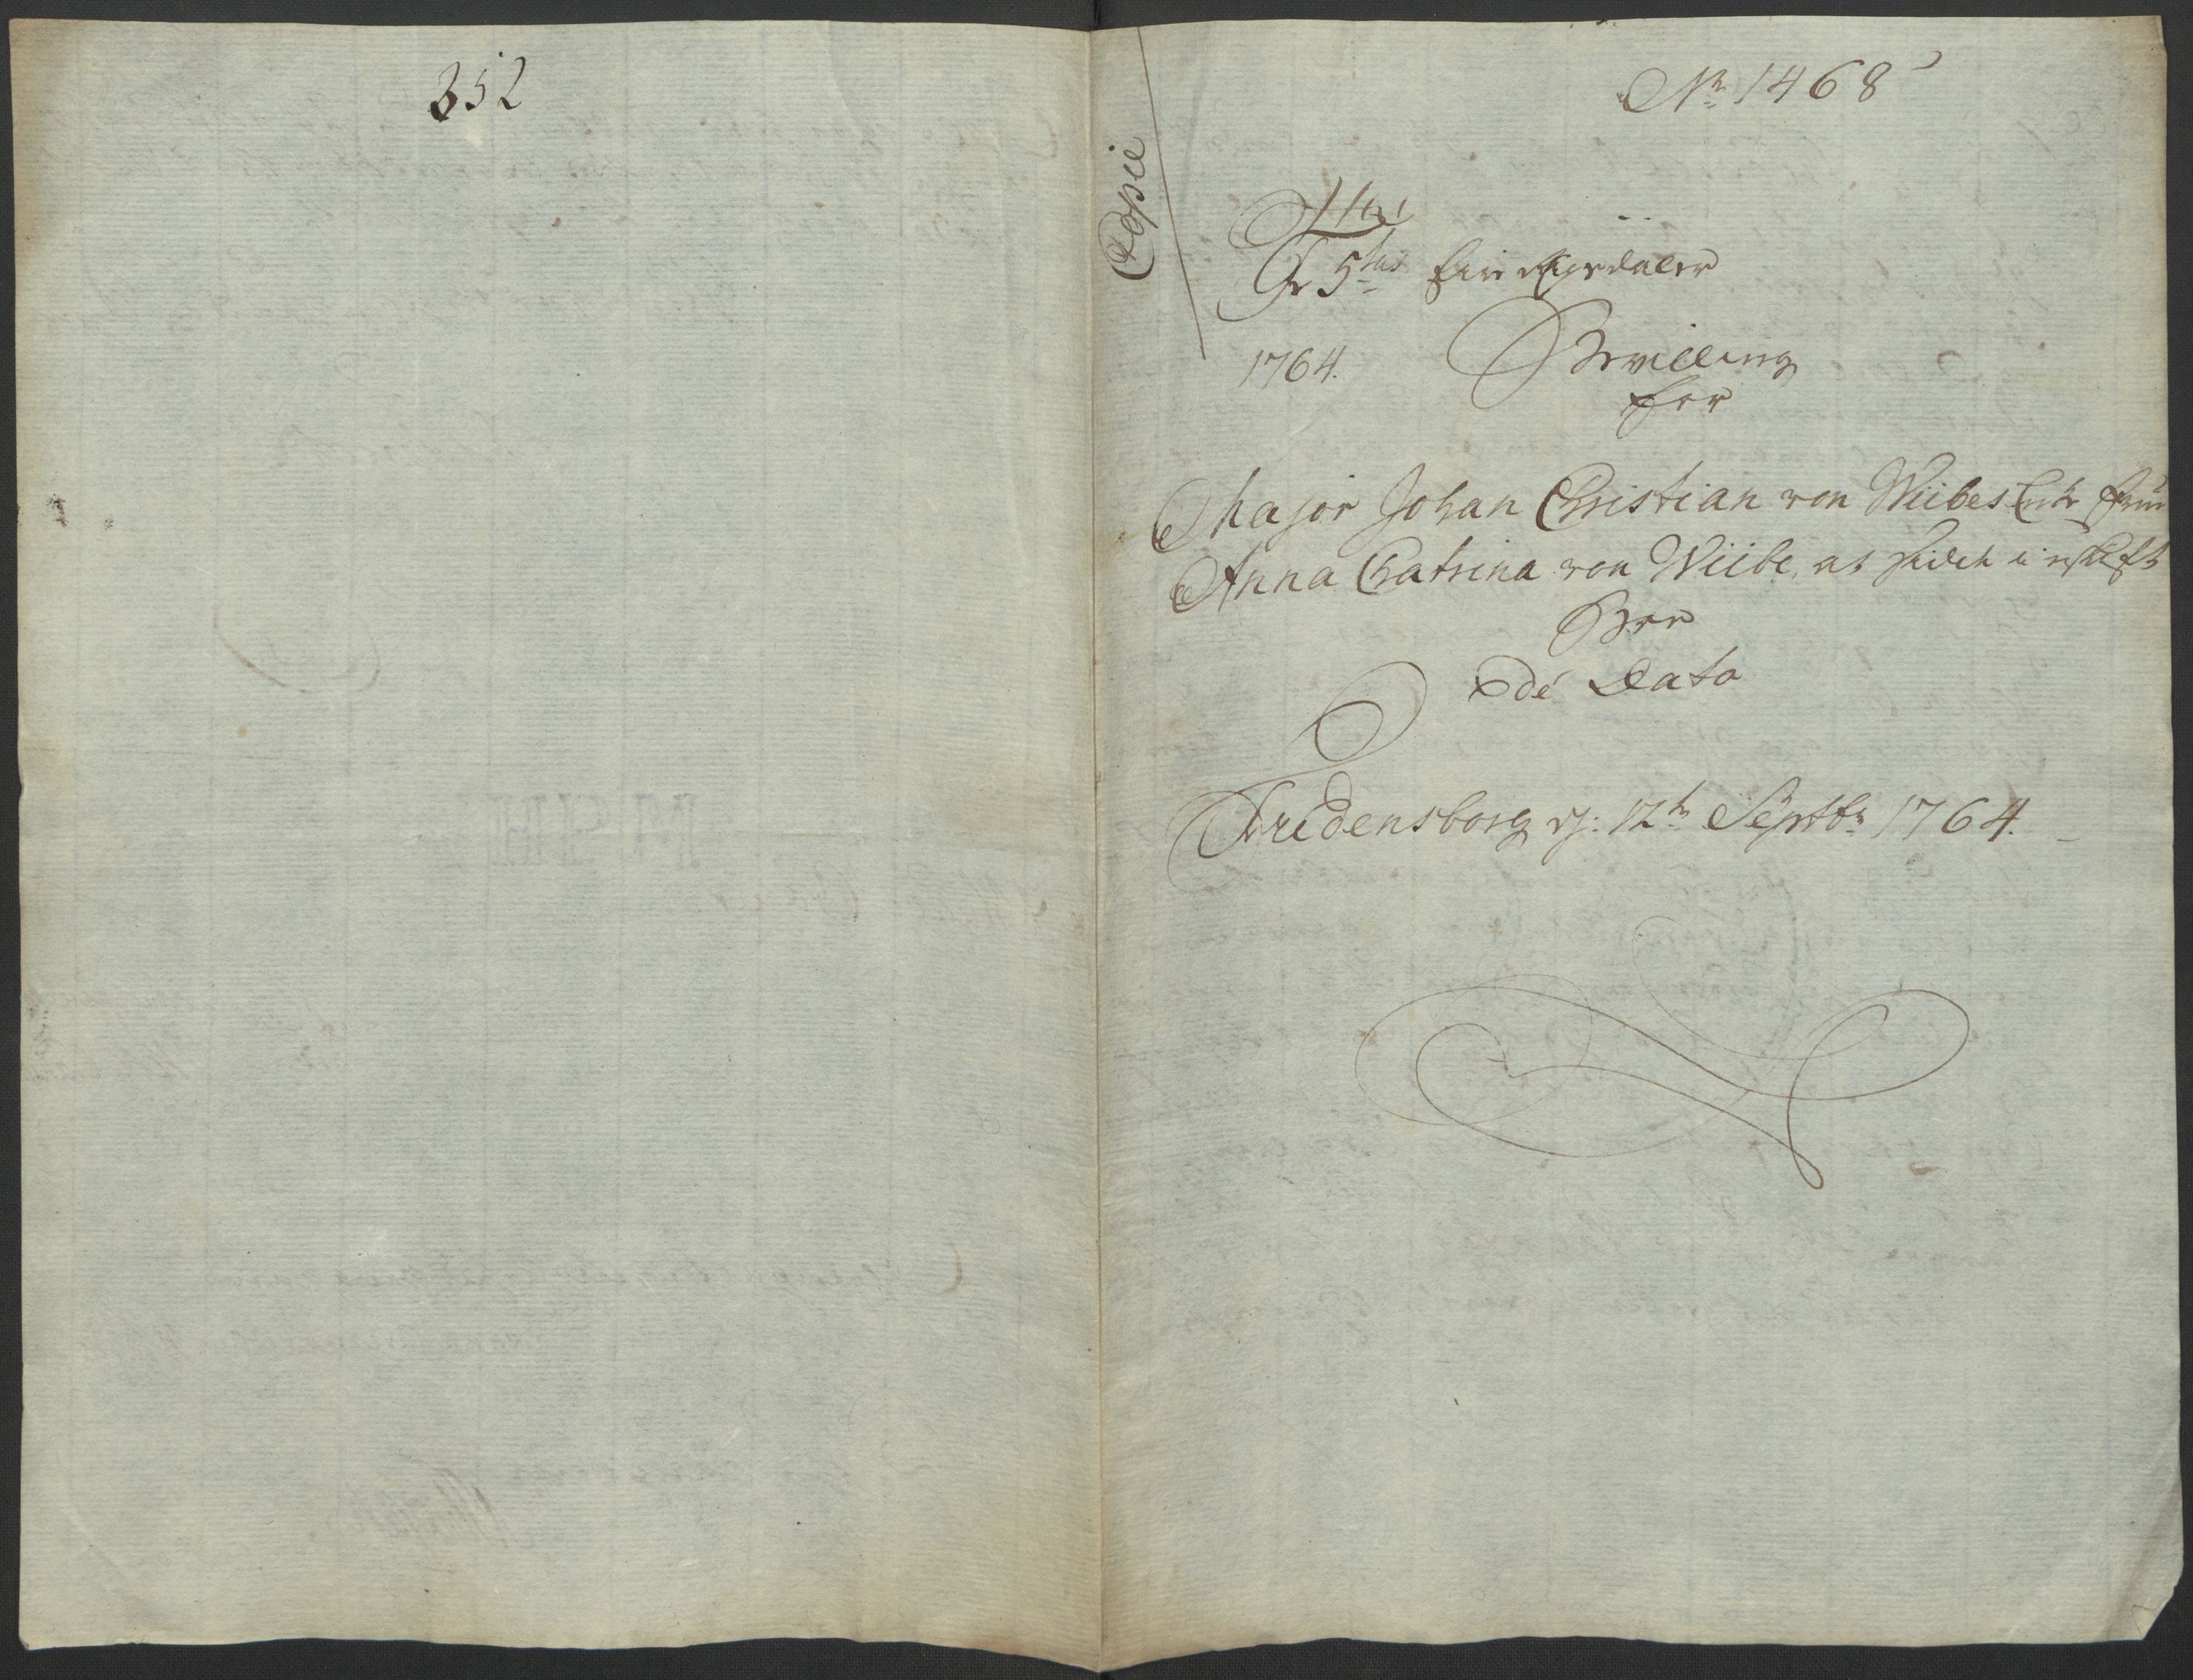 352
Copie
No 1468
No 1
Fr 5tus Fiire Rigsdaler
1764.
Bevilling
for
Major Johan Christian von Wiibes Enke Frue
Anna Catrina von Wiibe, at sidde i uskift
Boe
de Dato
Fredensborg d: 12te Septbr 1764.